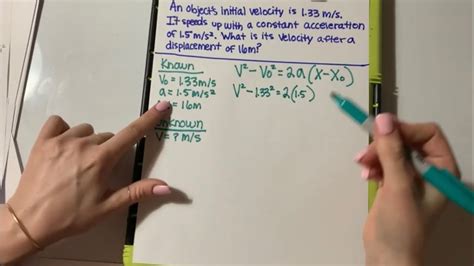 An object's initial velocity is 1.33 m/s.
It speeds up with a constant acceleration
of 1.5 m/s². What is its velocity after a
displacement of 16m?
Known
V₀ = 1.33 m/s
a = 1.5 m/s²
= 16m
Unknown
V = ? m/s
V² - V₀² = 2a(X-X₀)
V² - 1.33² = 2(1.5)